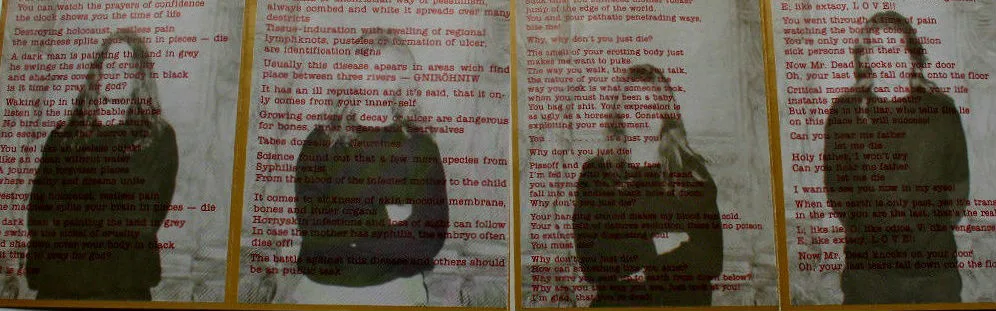 You can watch the prayers of confidence
the clock shows you the time of life
Destroying holocaust, restless pain
the madness splits your brain in pieces — die
A dark man is painting the land in grey
he swings the sickel of cruelity
and shadows cover your body in black
is it time to pray for god?
Waking up in the cold morning
listen to the indescribable silence
No bird sings
no escape from
You feel like an useless object
like an ocean without water
A jouney to forgotten places
where reality and dreams unite
Destroying holocaust, restless pain
the madness splits your brain in pieces — die
dark man is painting the land in grey
he swings the sickel of cruelity
and shadows cover your body in black
it time to pray for god?
way of pessimism,
always combed and white it spreads over many
destricts
Tissue-induration with swelling of regional
lymphknots, pusteles or formation of ulcer,
are identification signs
Usually this disease apears in areas wich find
place between three rivers — GNIRÖHNIW
It has an ill reputation and it's said, that it on-
ly comes from your inner-self
Growing centers of decay or ulcer are dangerous
for bones, inner organs or heartwalves
Tabes dorsalis
Science found out that a few more species from
Syphilis exist
From the blood of the infected mother to the child
It comes to sickness of skin, mocous membrane,
bones and inner organs
Hornyskin infections and loss of sight can follow
In case the mother has syphilis, the embryo often
dies off!
The battle against this disease and others should
be an public task
jump of the edge of the world.
You and your pathatic penetrading ways,
Why, why don't you just die?
The smell of your erotting body just
makes me want to puke
The way you walk, the way you talk,
the nature of your character
way you look is what someone took,
when you must have been a baby.
You bag of shit. Your expression is
as ugly as a horses ass. Constantly
exploiting your enviroment.
Why don't you just die!
Pissoff and get out of my face
I'm fed up with you, just can't stand
you anymore.
fall into an endless black hole of doom.
Why don't you just die?
Your hanging around makes my blood run cold.
Your a misfit of natures evolution, there is no poison
to extinct
You must die!
Why don't you just die?
How can something like you exist?
Why were you sent up to earth from down below?
Why are you the way you are, just look at you!
I'm glad, that you're dead!
E; like extacy, L O V E!!
You went through
watching the boring
You're only one man in a million
sick persons burn their
Now Mr. Dead knocks on your door
Oh, your last tears fall down onto the floor
Critical moments can change your life
instants means your death?
But where is the liar, who tells the lie
on this place he will succeed!
Can you hear me father
let me die
Holy father, I won't cry
Can you hear me father
let me die
I wanna see you now in my eyes!
When the earth is only past,
in the row you are the last, that's the
L; like lie, O; like odica, V; like vengeance
E; like extacy, L O V E!!
Now Mr. Dead knocks on your door
Oh, your last tears fall down onto the